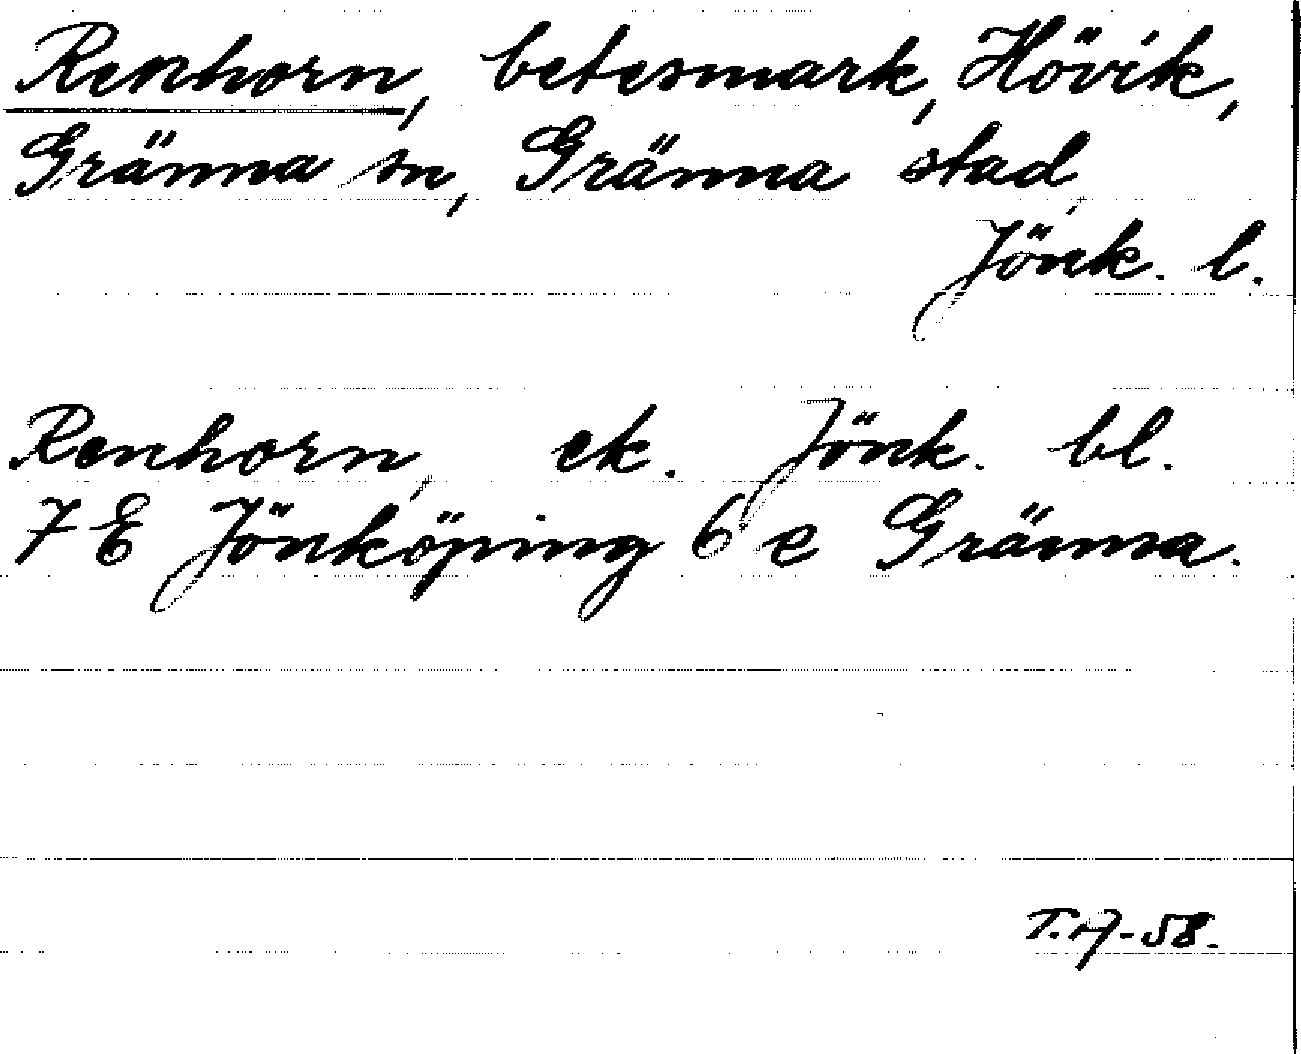 Renhorn, betesmark, Hövik,
Gränna sn, Gränna stad,
Jönk. l.
Renhorn, ek. Jönk. bl.
7 E Jönköping 6 e Gränna.
T.A-58.